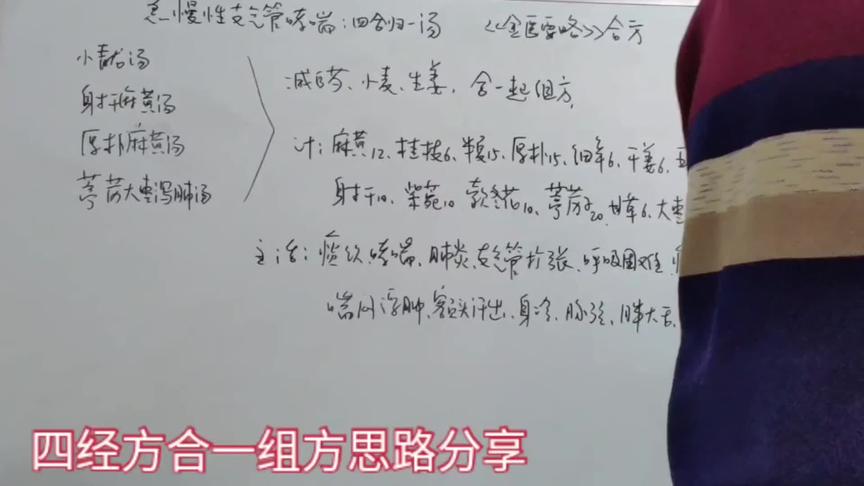 急、慢性支气管哮喘:四合归一汤 《金匮要略》合方
小青龙汤
射干麻黄汤
厚朴麻黄汤
葶苈大枣泻肺汤
减白芍、小麦、生姜,合一起组方,
计:麻黄12、桂枝6、半夏15、厚朴15、细辛6、干姜6、五
射干10、紫菀10、款冬花10、葶苈子20、甘草6、大枣
主治:哮喘、肺炎、支气管扩张、呼吸困难、
喘 浮肿、额头汗出、身冷、脉弦、胖大舌、
四经方合一组方思路分享